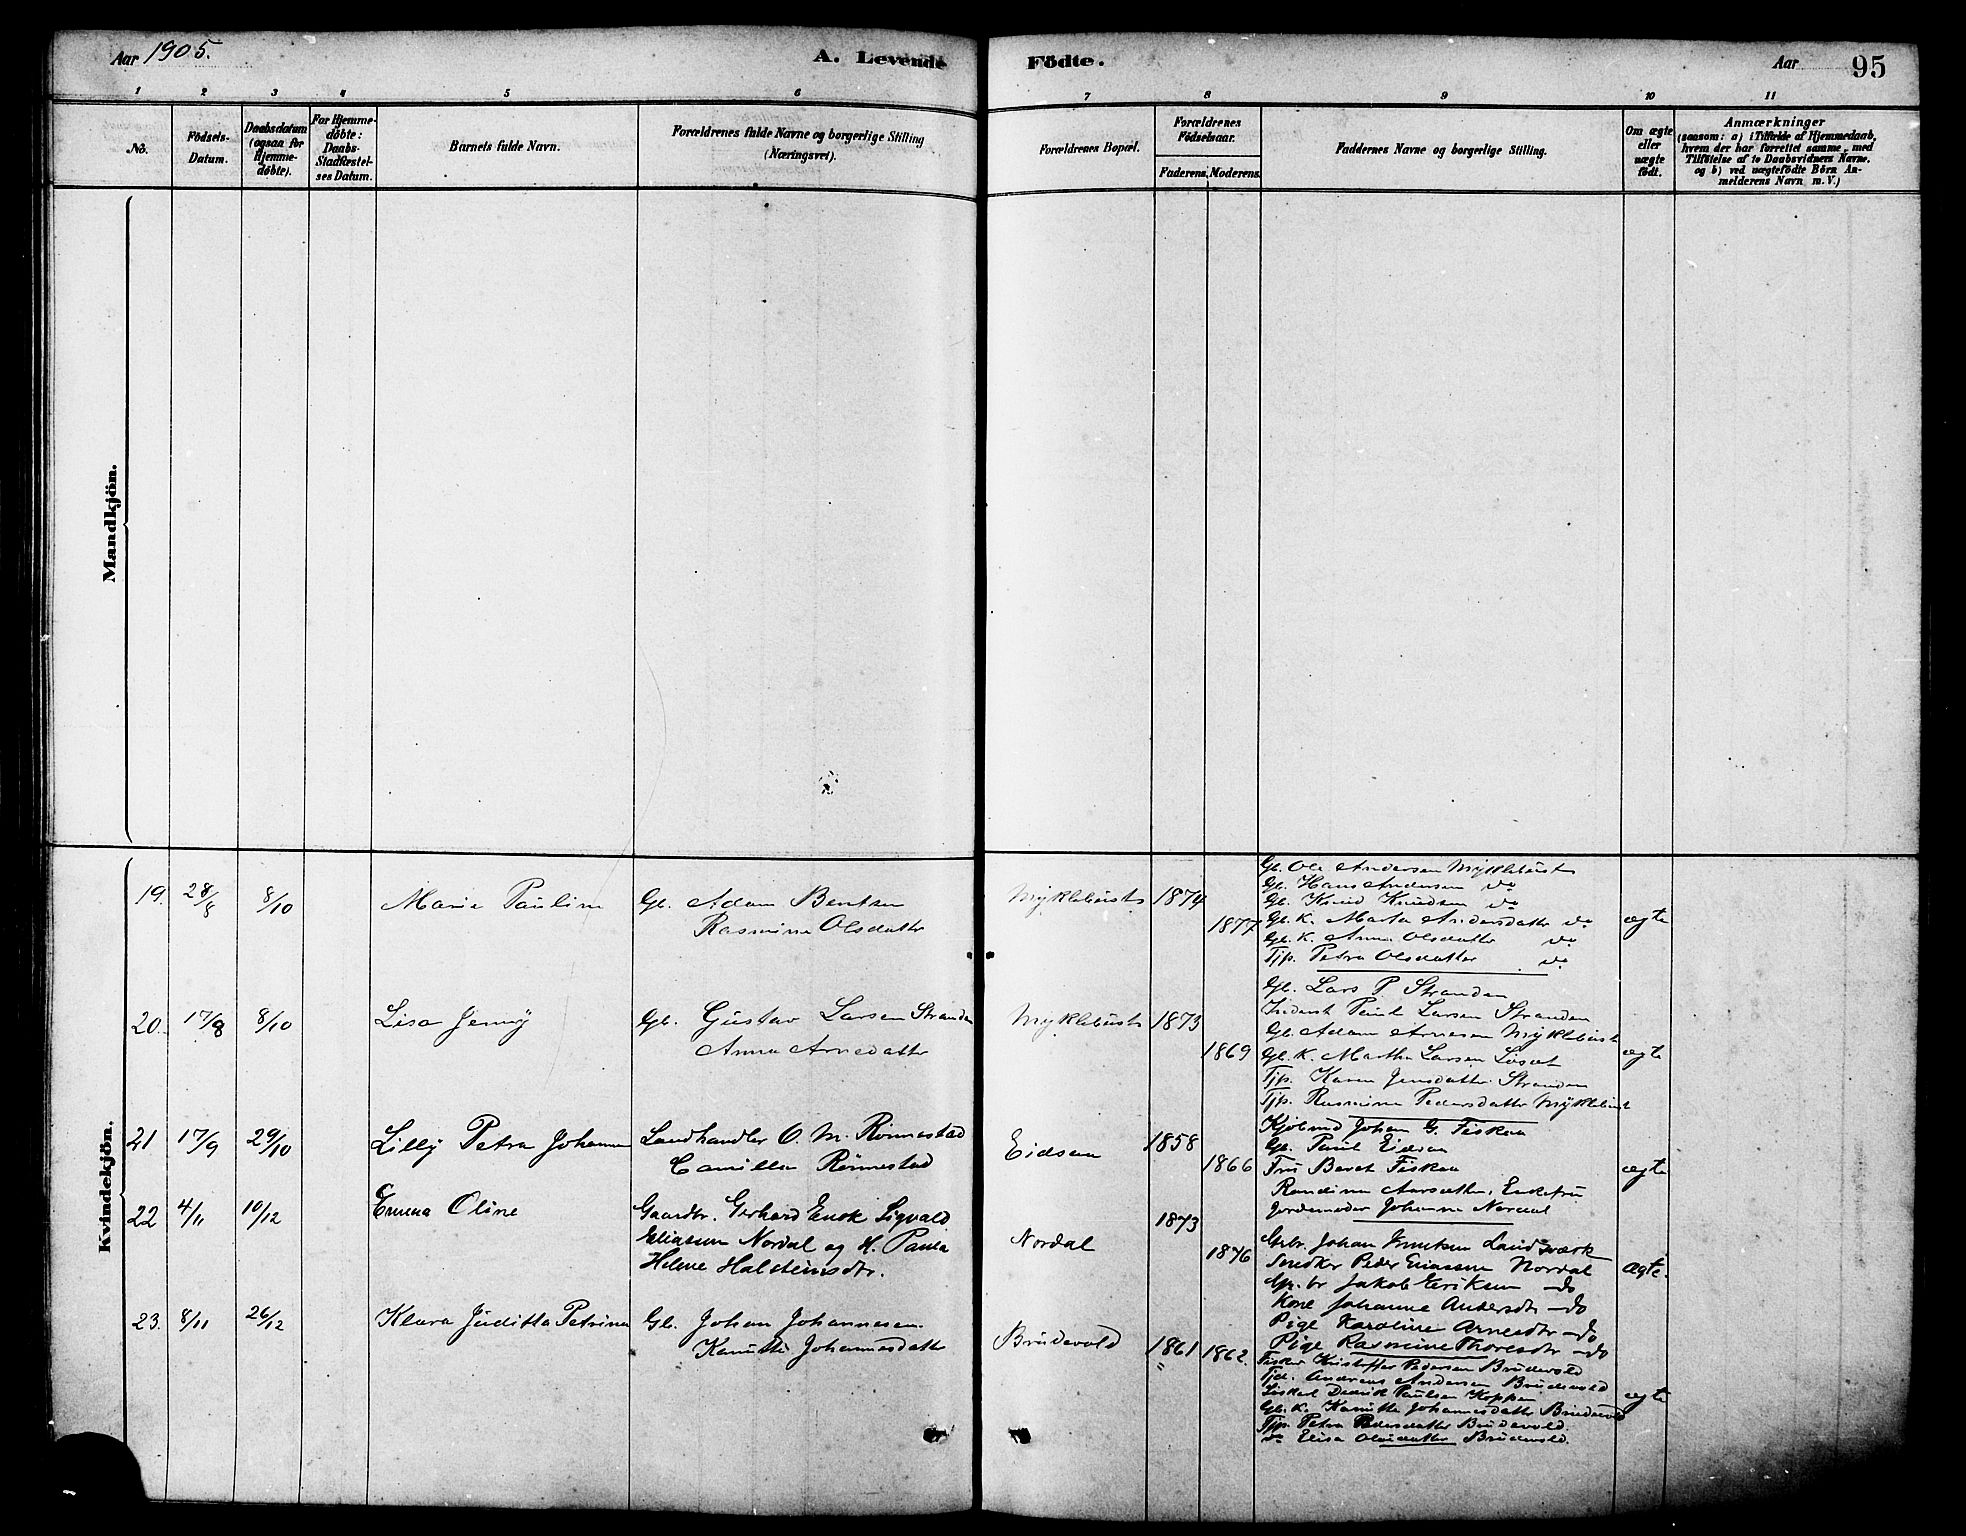 Aar 1905.
A. Levende
Födte.
Aar
95
1 2 3 4 5 6 7 8 9 10 11
No.
Födsels-
Datum.
Daabsdatum
(ogsaa for
Hjemme-
döbte).
For Hjemme-
döbte:
Daabs-
Stadfæstel-
ses Datum.
Barnets fulde Navn.
Forældrenes fulde Navne og borgerlige Stilling
(Næringsvei).
Forældrenes Bopæl.
Forældrenes
Födselsaar.
Faderens. Moderens.
Faddernes Navne og borgerlige Stilling.
Om ægte
eller
uægte
födt.
Anmærkninger
(saasom: a) i Tilfælde af Hjemmedaab,
hvem der har forrettet samme, med
Tilföielse af to Daabsvidners Navne.
og b) ved uægtefödte Börn An-
melderens Navn m. V.)
Mandkjön.
Kvindekjön.
19. 28/8 8/10 Marie Pauline Gb. Adam Bentsen
Rasmine Olsdatter
Myklebust 1874
1877
Gb. Ole Andersen Myklebust
Gb. Hans Andersen do
Gb. Knud Knudsen do
Gb. K. Marta Andersdatter do
Gb. K. Anne Olsdatter do
Tjp. Petra Olsdatter do
ægte
20. 17/8 8/10 Lisa Jenny Gb. Gustav Larsen Stranden
Anna Arnedatter
Myklebust 1873
1869
Gb. Lars P Stranden
Paul Larsen Stranden
Gb. Adam Arnesen Myklebust
Gb. K. Martha Larsen
Tjp. Karen Jensdatter Stranden
Tjp. Rasmine Pedersdatter Myklebust
ægte
21 17/9 29/10 Lilly Petra Johanne Landhandler O. M. Rönnestad
Camilla Rönnestad
Eidsaa 1858
1866
Kjöbmd Johan G. Fiskaa
Gb. Paul Eidsaa
Fru Beret Fiskaa
Randine Aarsæther, Enkefru
Jordemoder Johanne Nordal
ægte
22 4/11 10/12 Emma Oline Gaardbr. Gerhard Enok Sigvald
Eliassen Nordal og H. Paula
Helene Halsteinsdtr.
Nordal 1873
1876
Gbr. Johan Knutsen Landsværk
Snedker Peder Eliassen Nordal
Gbr Jakob Eriksen do
Kone Johanne Andersdtr do
Pige Karoline Arnesdtr do
Pige Rasmine Thoresdtr do
ægte.
23. 8/11 26/12 Klara Juditta Petrine Gb. Johan Johannesen
Kanutte Johannesdatter
Brudevold 1861 1862.
Fisker Kristoffer Pedersen Brudevold
Tjd. Andreas Andersen Brudevold
Fisker Didrik Paulsen Koppen
Gb. K. Kanutte Johannesdatter Brudevold
Tjp. Petra Pedersdatter Brudevold
do Elisa Olsdatter Brudevold.
ægte